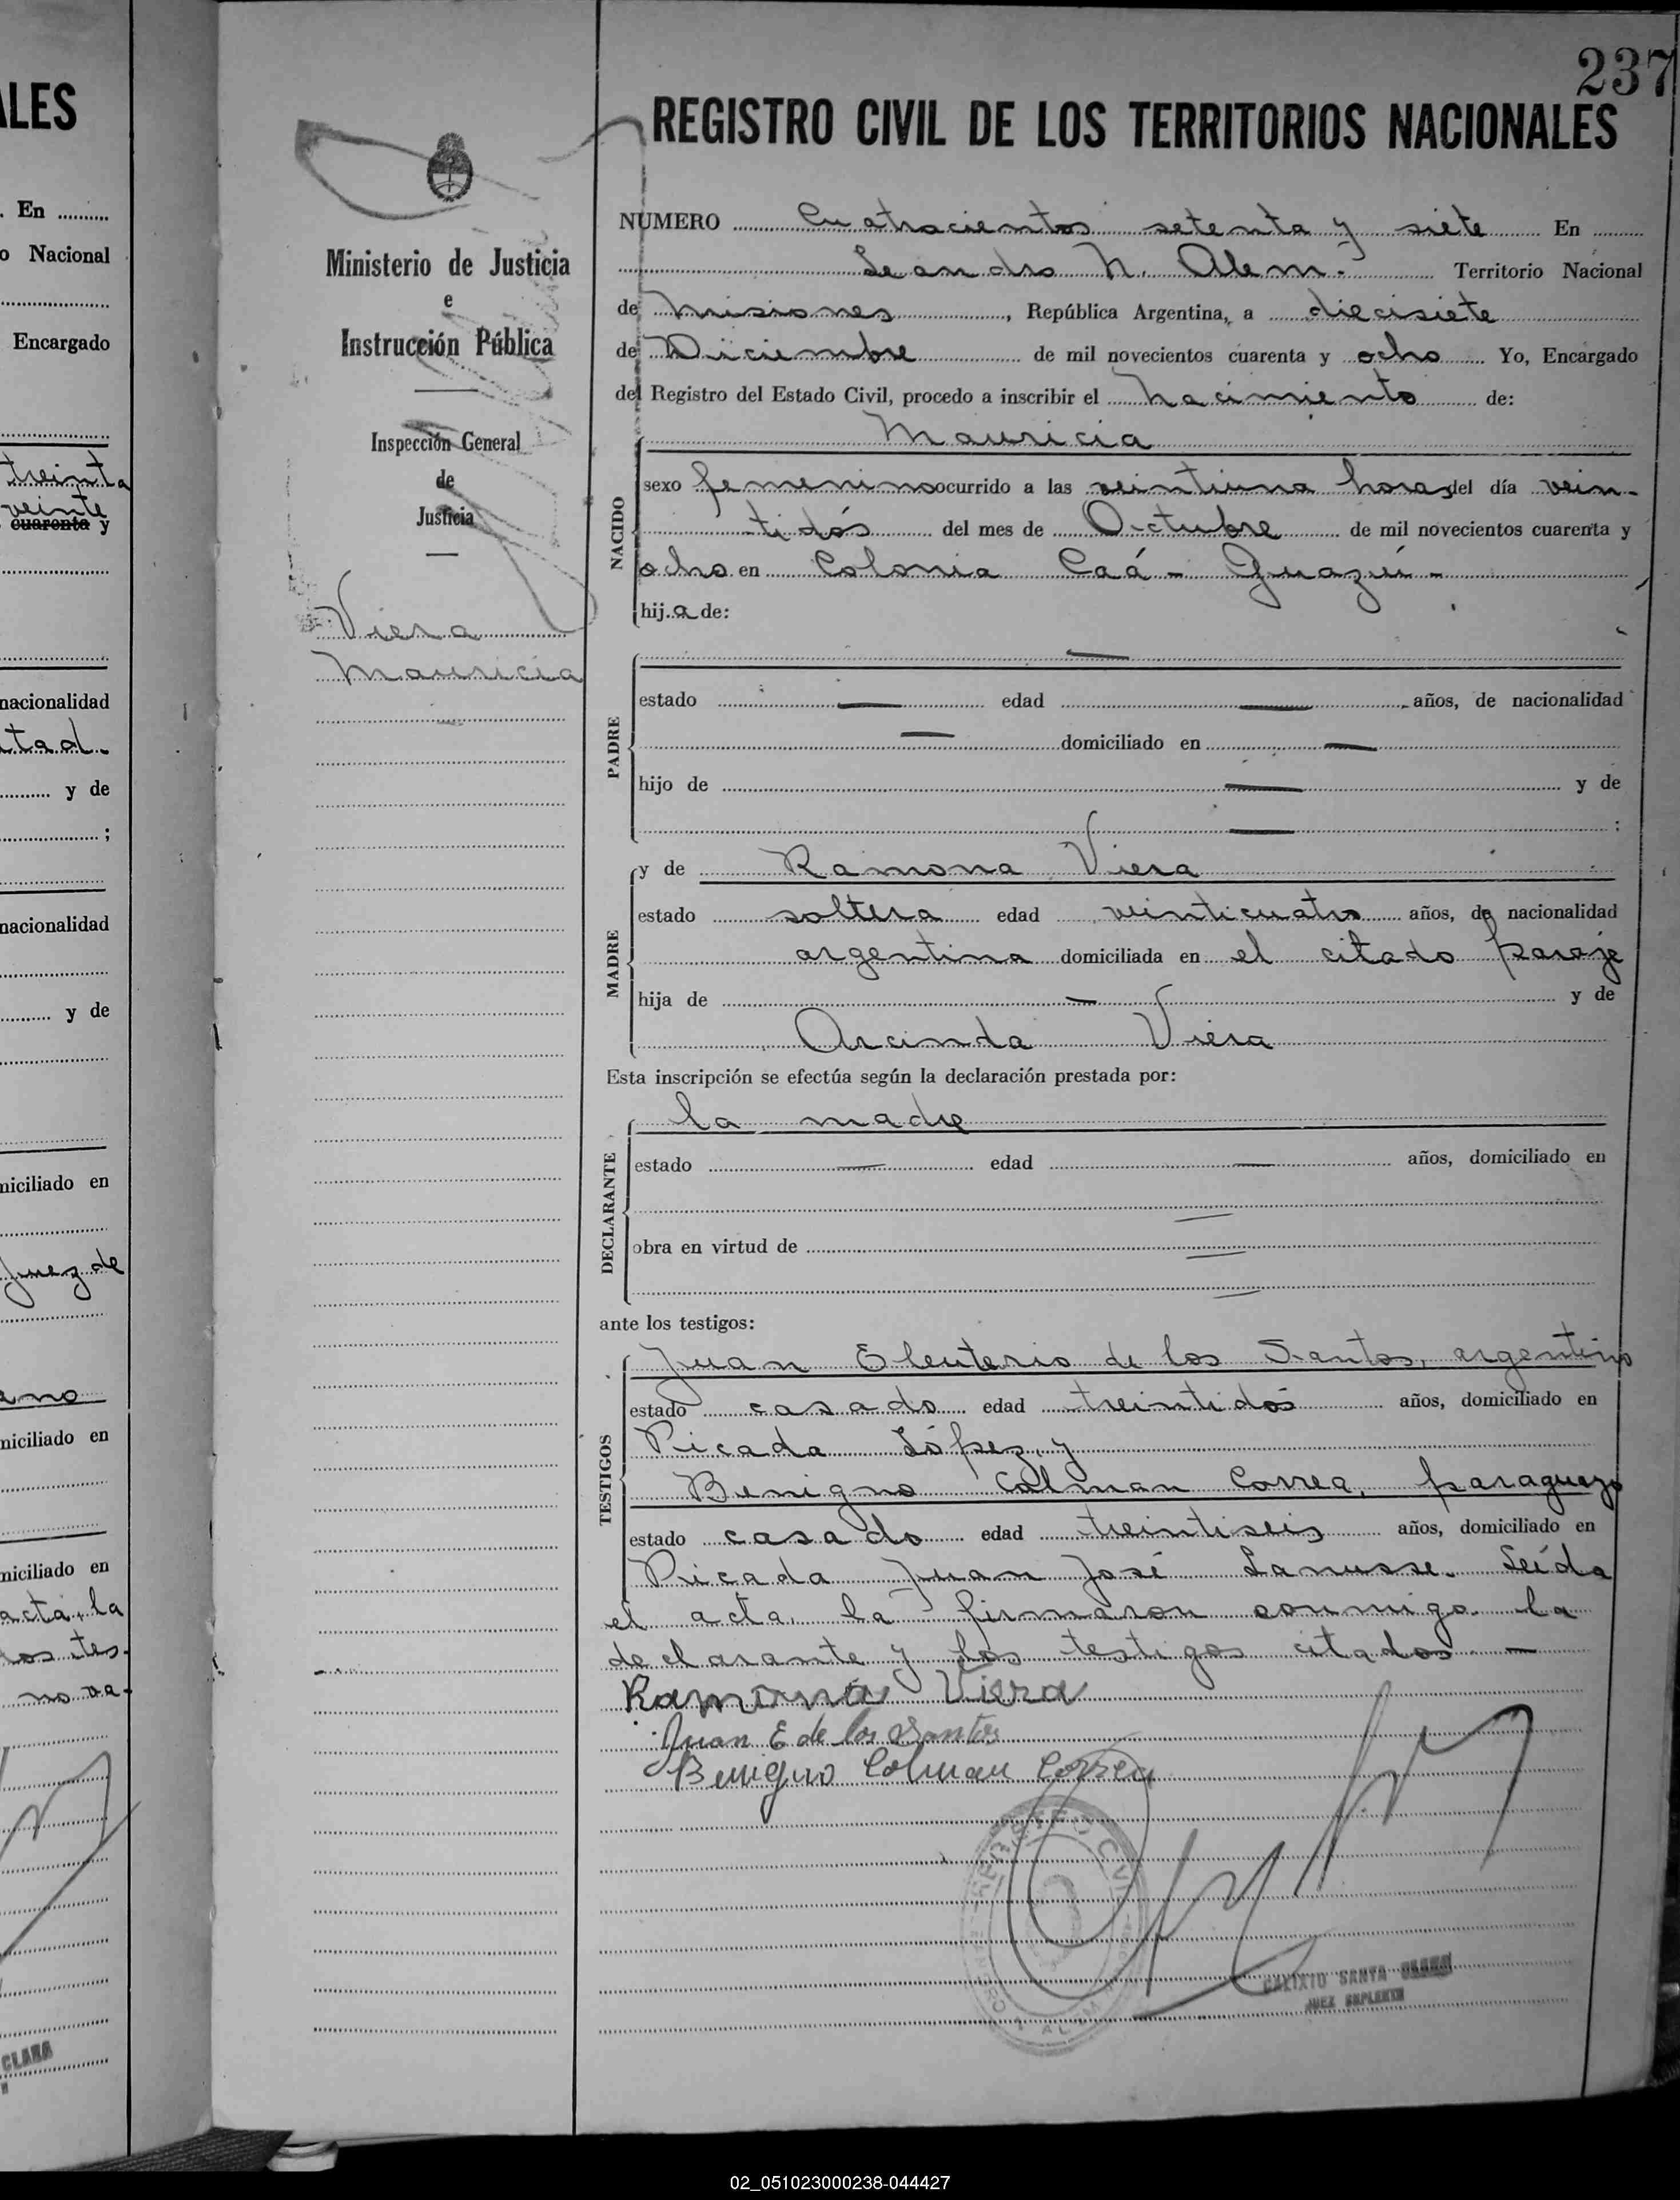 237
REGISTRO CIVIL DE LOS TERRITORIOS NACIONALES
Ministerio de Justicia
e
Instrucción Pública
Inspección General
de
Justicia
Viera
Mauricia
NUMERO Cuatrocientos setenta y siete En
Leandro N. Alem.- Territorio Nacional
de Misiones, República Argentina, a diecisiete
de Diciembre de mil novecientos cuarenta y ocho Yo, Encargado
del Registro del Estado Civil, procedo a inscribir el nacimiento de:
NACIDO
Mauricia
sexo femenino ocurrido a las veintiuna horas del día vein-
tidós del mes de Octubre de mil novecientos cuarenta y
ocho en Colonia Caá-Guazú-
hij a de:
PADRE
—
estado — edad — años, de nacionalidad
— domiciliado en —
hijo de — y de
— ;
MADRE
y de Ramona Viera
estado soltera edad veinticuatro años, de nacionalidad
argentina domiciliada en el citado paraje
hija de — y de
Arcinda Viera
Esta inscripción se efectúa según la declaración prestada por:
DECLARANTE
la madre
estado — edad — años, domiciliado en
—
obra en virtud de —
—
ante los testigos:
TESTIGOS
Juan Eleuterio de los Santos, argentino
estado casado edad treintidós años, domiciliado en
Picada López, y
Benigno Colman Correa, paraguayo
estado casado edad treintiseis años, domiciliado en
Picada Juan José Lanusse. Leída
el acta, la firmaron conmigo la
declarante y los testigos citados —
Ramona Viera
Juan E de los Santos
Benigno Colman Correa
REGISTRO CIVIL
CALIXTO SANTA CLARA
JUEZ SUPLENTE
ALES
. En
o Nacional
Encargado
treinta
veinte
cuarenta y
nacionalidad
tad.
y de
;
nacionalidad
y de
miciliado en
Juez de
miciliado en
miciliado en
acta, la
los tes-
no va-
CLARA
02_051023000238-044427